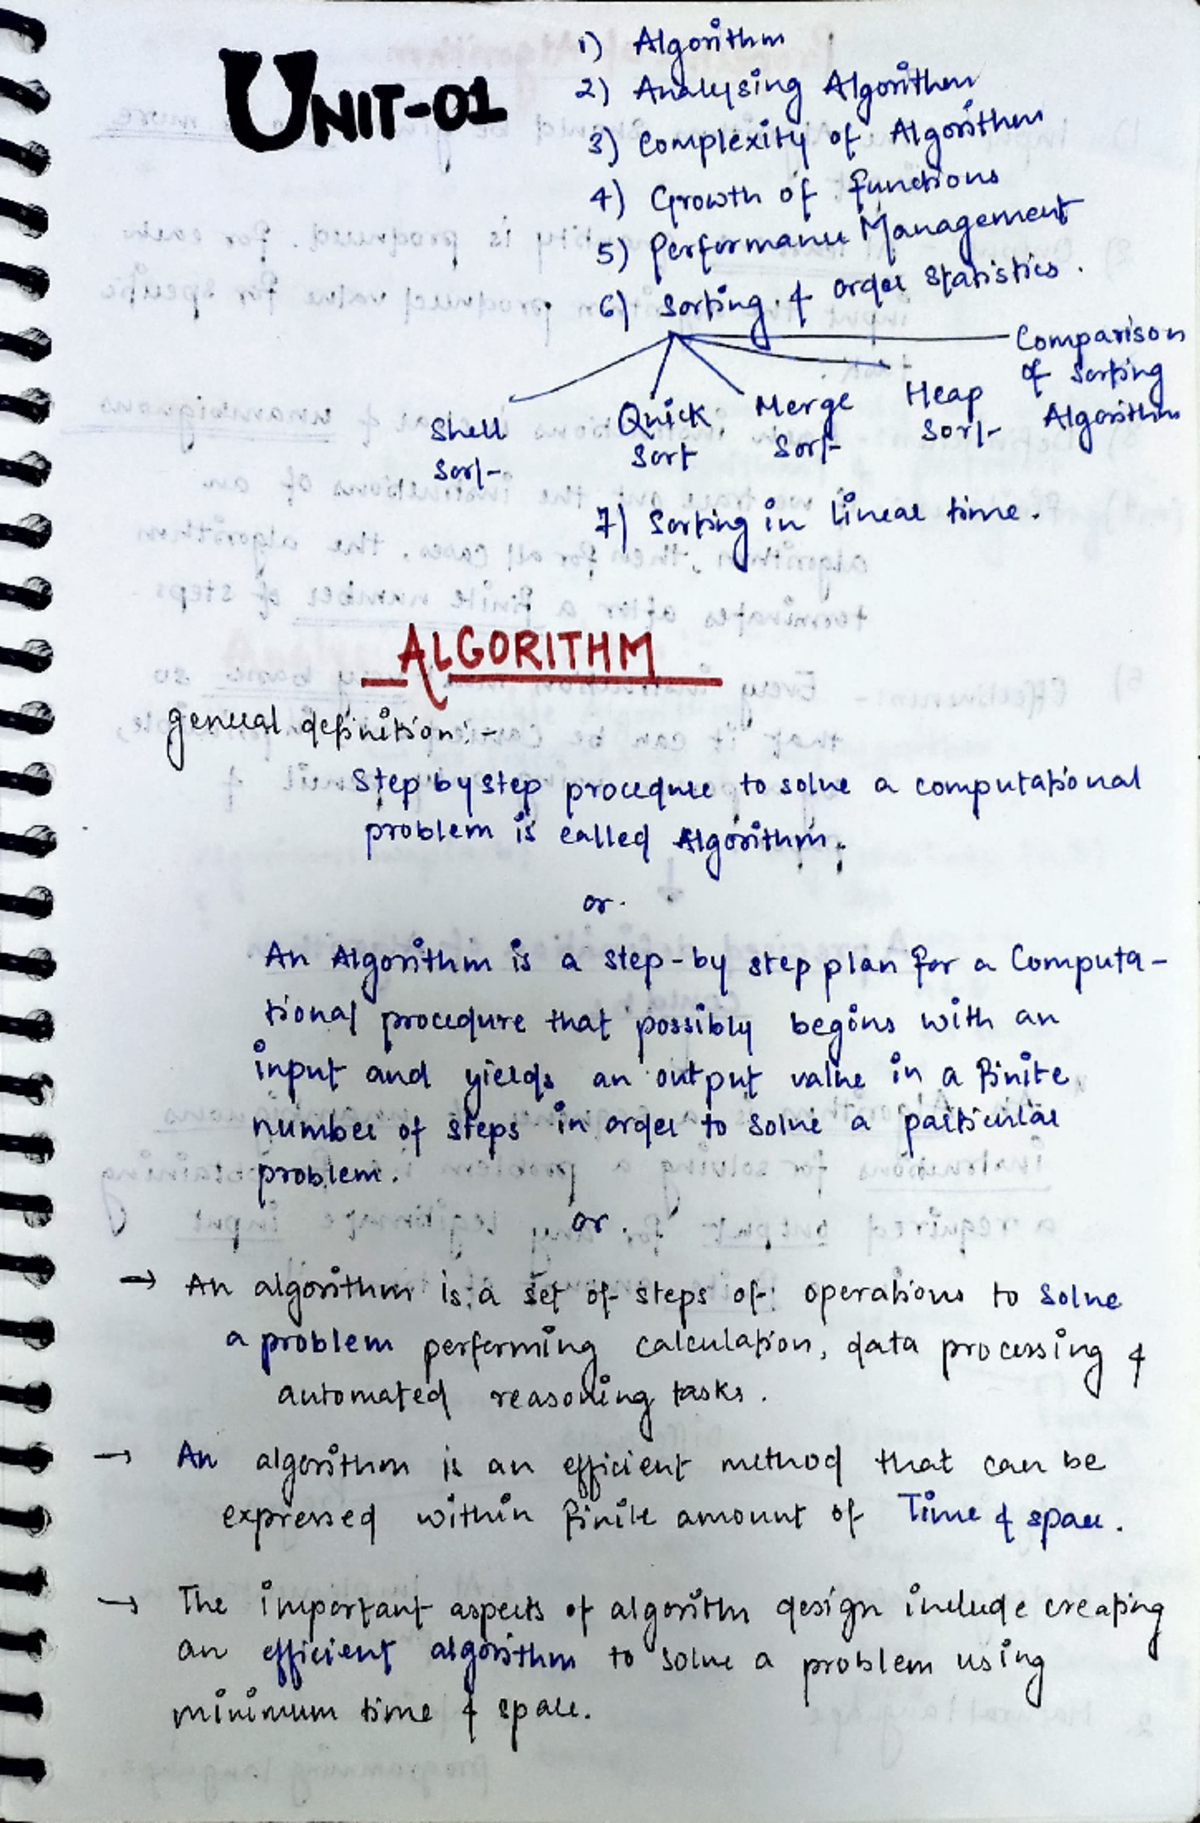 UNIT-01
1) Algorithm
2) Analysing Algorithm
3) Complexity of Algorithm
4) Growth of functions
5) Performance Management
6) Sorting & order Statistics.
Shell Sort
Quick Sort
Merge Sort
Heap Sort
Comparison of Sorting Algorithm
7) Sorting in linear time.
ALGORITHM
general definition:-
Step by step procedure to solve a computational
problem is called Algorithm.
or.
An Algorithm is a step-by step plan for a Computa-
tional procedure that possibly begins with an
input and yields an output value in a finite
number of steps in order to solve a particular
problem.
or.
→ An algorithm is a set of steps of operations to solve
a problem performing calculation, data processing &
automated reasoning tasks.
→ An algorithm is an efficient method that can be
expressed within finite amount of Time & space.
→ The important aspects of algorithm design include creating
an efficient algorithm to solve a problem using
minimum time & space.